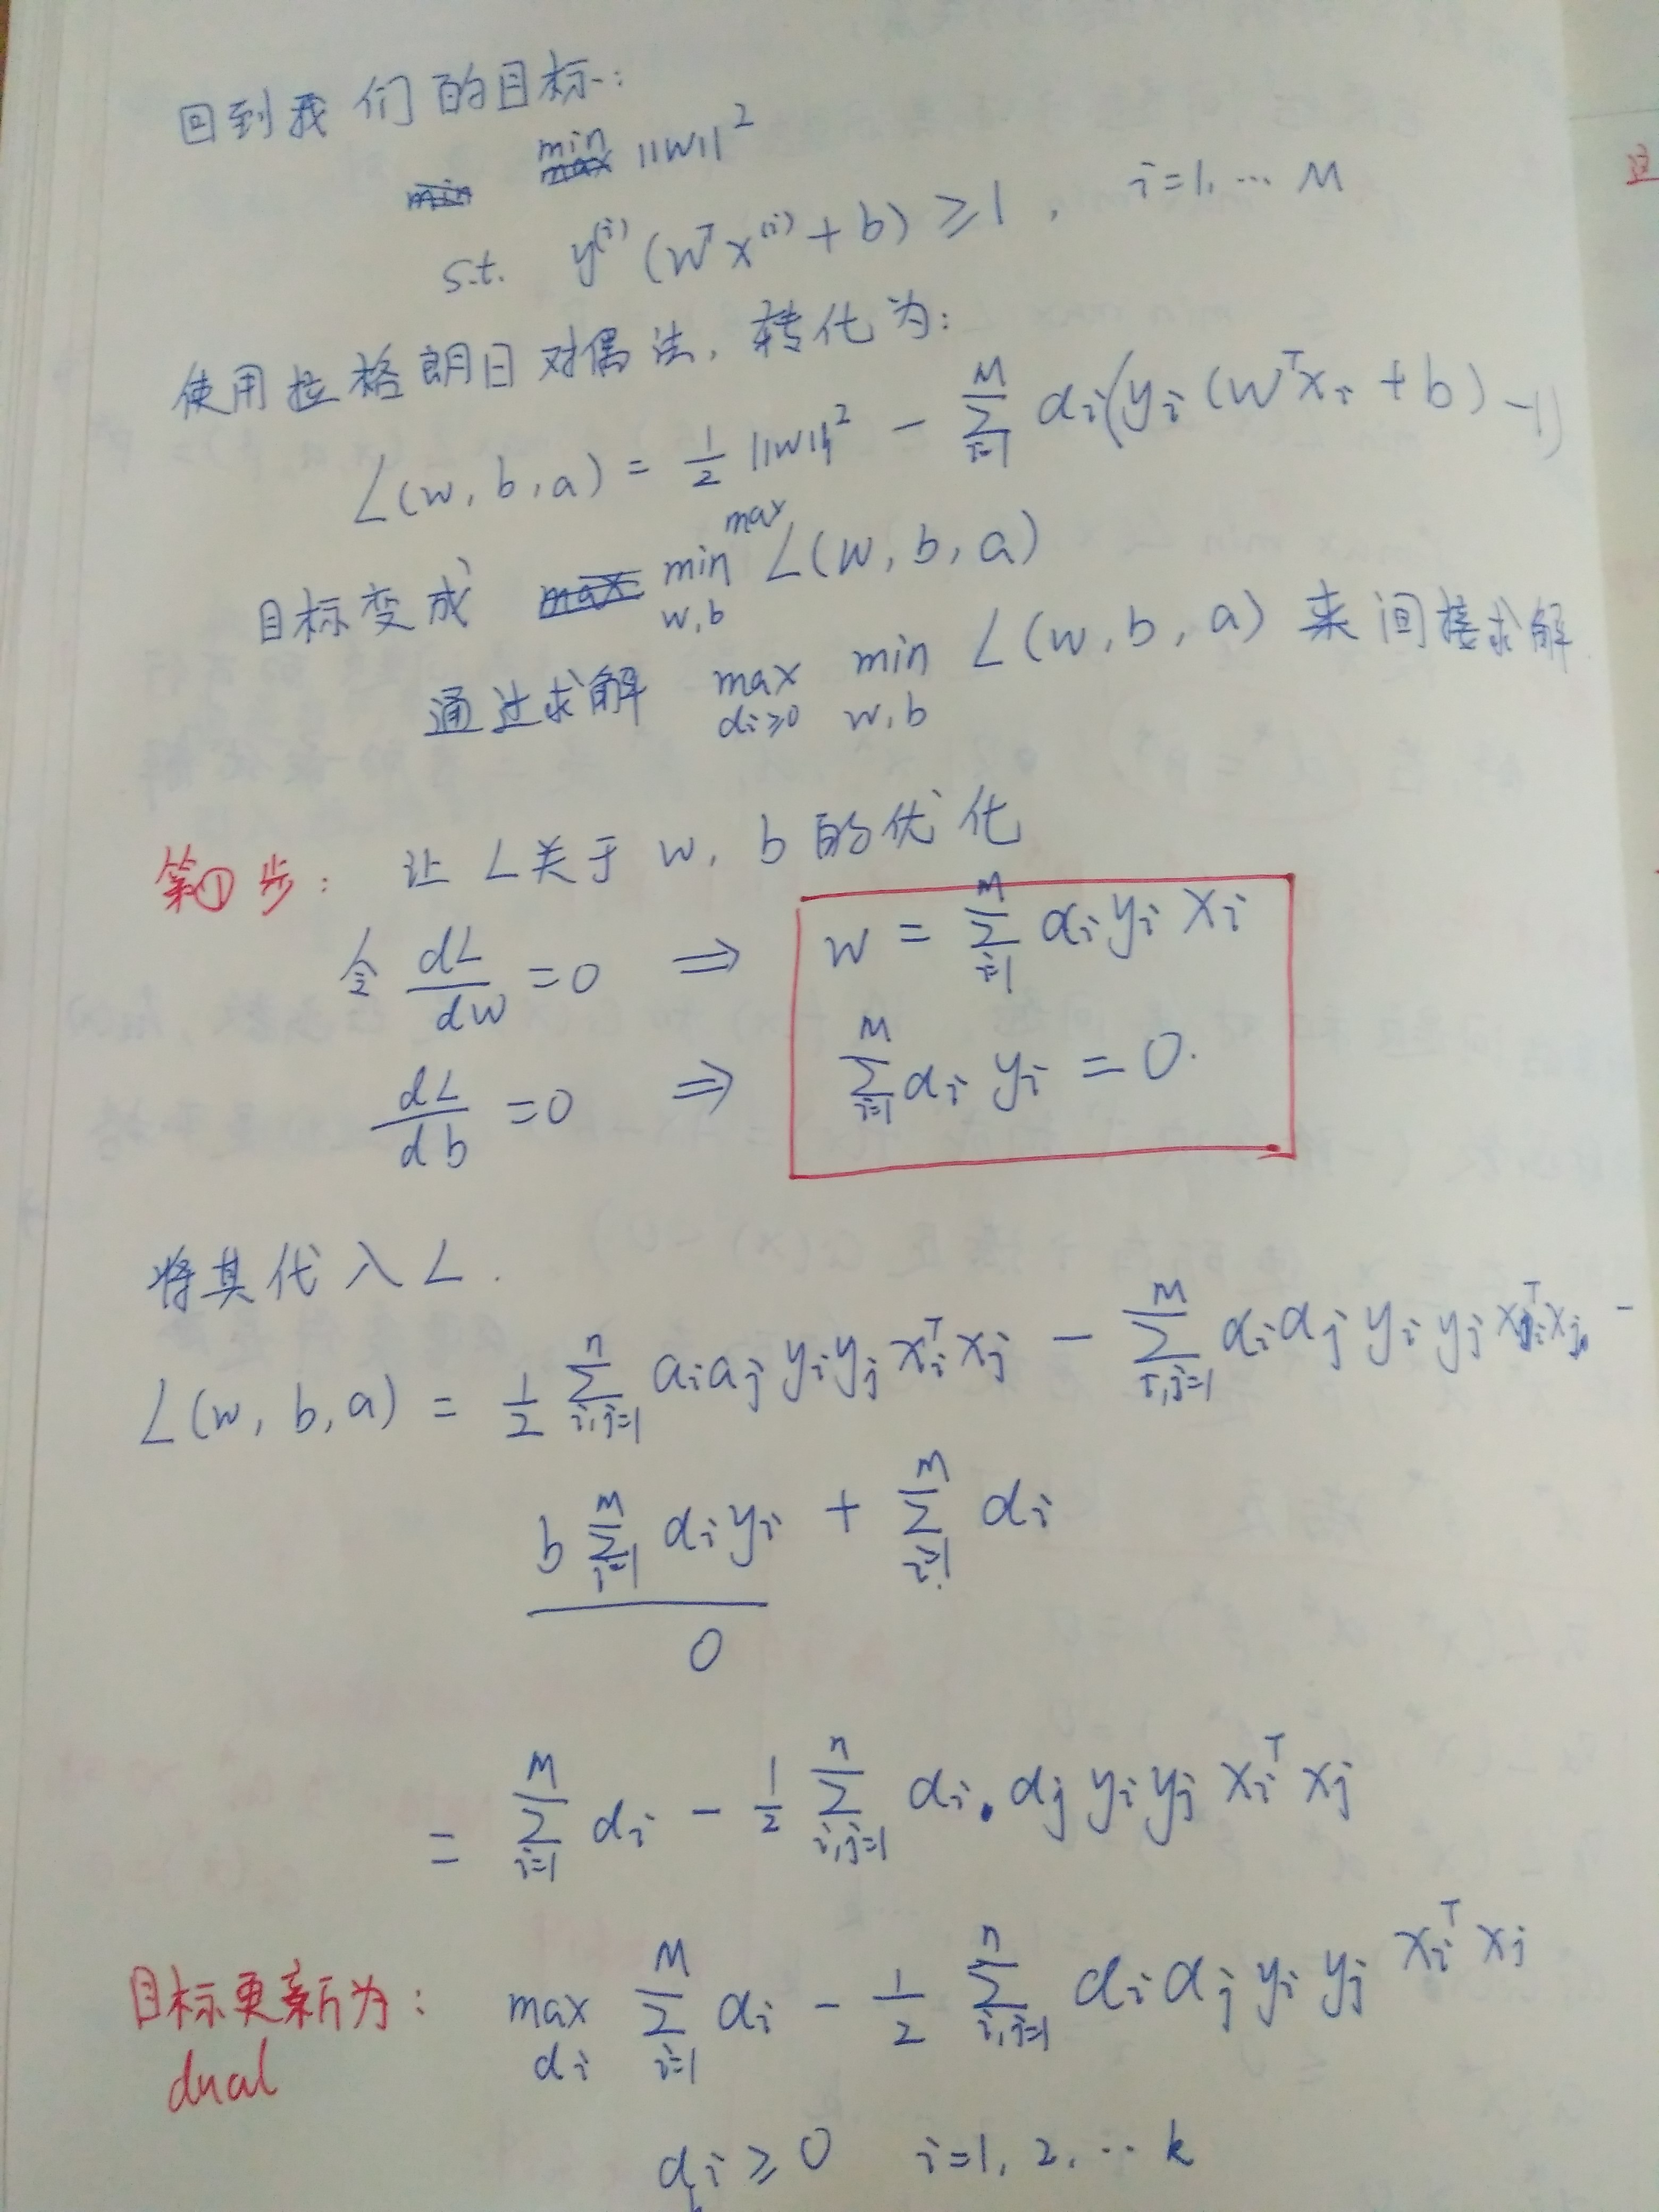 回到我们的目标:
min ||w||²
s.t. y⁽ⁱ⁾(wᵀx⁽ⁱ⁾+b) ≥ 1, i=1, … M
使用拉格朗日对偶法, 转化为:
L(w, b, a) = 1/2 ||w||² - Σ_{i=1}^{M} αi(yi(wᵀxi + b) - 1)
目标变成 min_{w,b} max L(w, b, a)
通过求解 max_{αi≥0} min_{w,b} L(w, b, a) 来间接求解
第①步: 让 L关于 w, b 的优化
令 dL/dw = 0 ⇒ w = Σ_{i=1}^{M} αi yi xi
dL/db = 0 ⇒ Σ_{i=1}^{M} αi yi = 0.
将其代入 L.
L(w, b, a) = 1/2 Σ_{i,j=1}^{n} ai aj yi yj xiᵀ xj - Σ_{i,j=1}^{M} αi αj yi yj xiᵀ xj -
b Σ_{i=1}^{M} αi yi + Σ_{i=1}^{M} αi
0
= Σ_{i=1}^{M} αi - 1/2 Σ_{i,j=1}^{n} αi · αj yi yj xiᵀ xj
目标更新为: max_{αi} Σ_{i=1}^{M} αi - 1/2 Σ_{i,j=1}^{n} αi αj yi yj xiᵀ xj
dual
αi ≥ 0 i=1, 2, … k